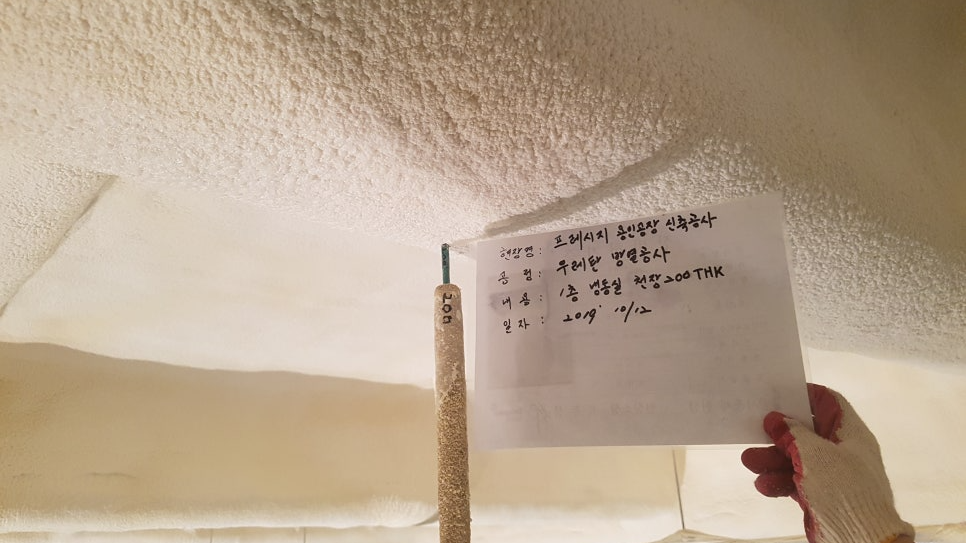 현장명 : 프레시지 용인공장 신축공사
공 험 : 우레탄 방열공사
내 용 : 1층 냉동실 천장 200 THK
일 자 : 2019' 10/12
200